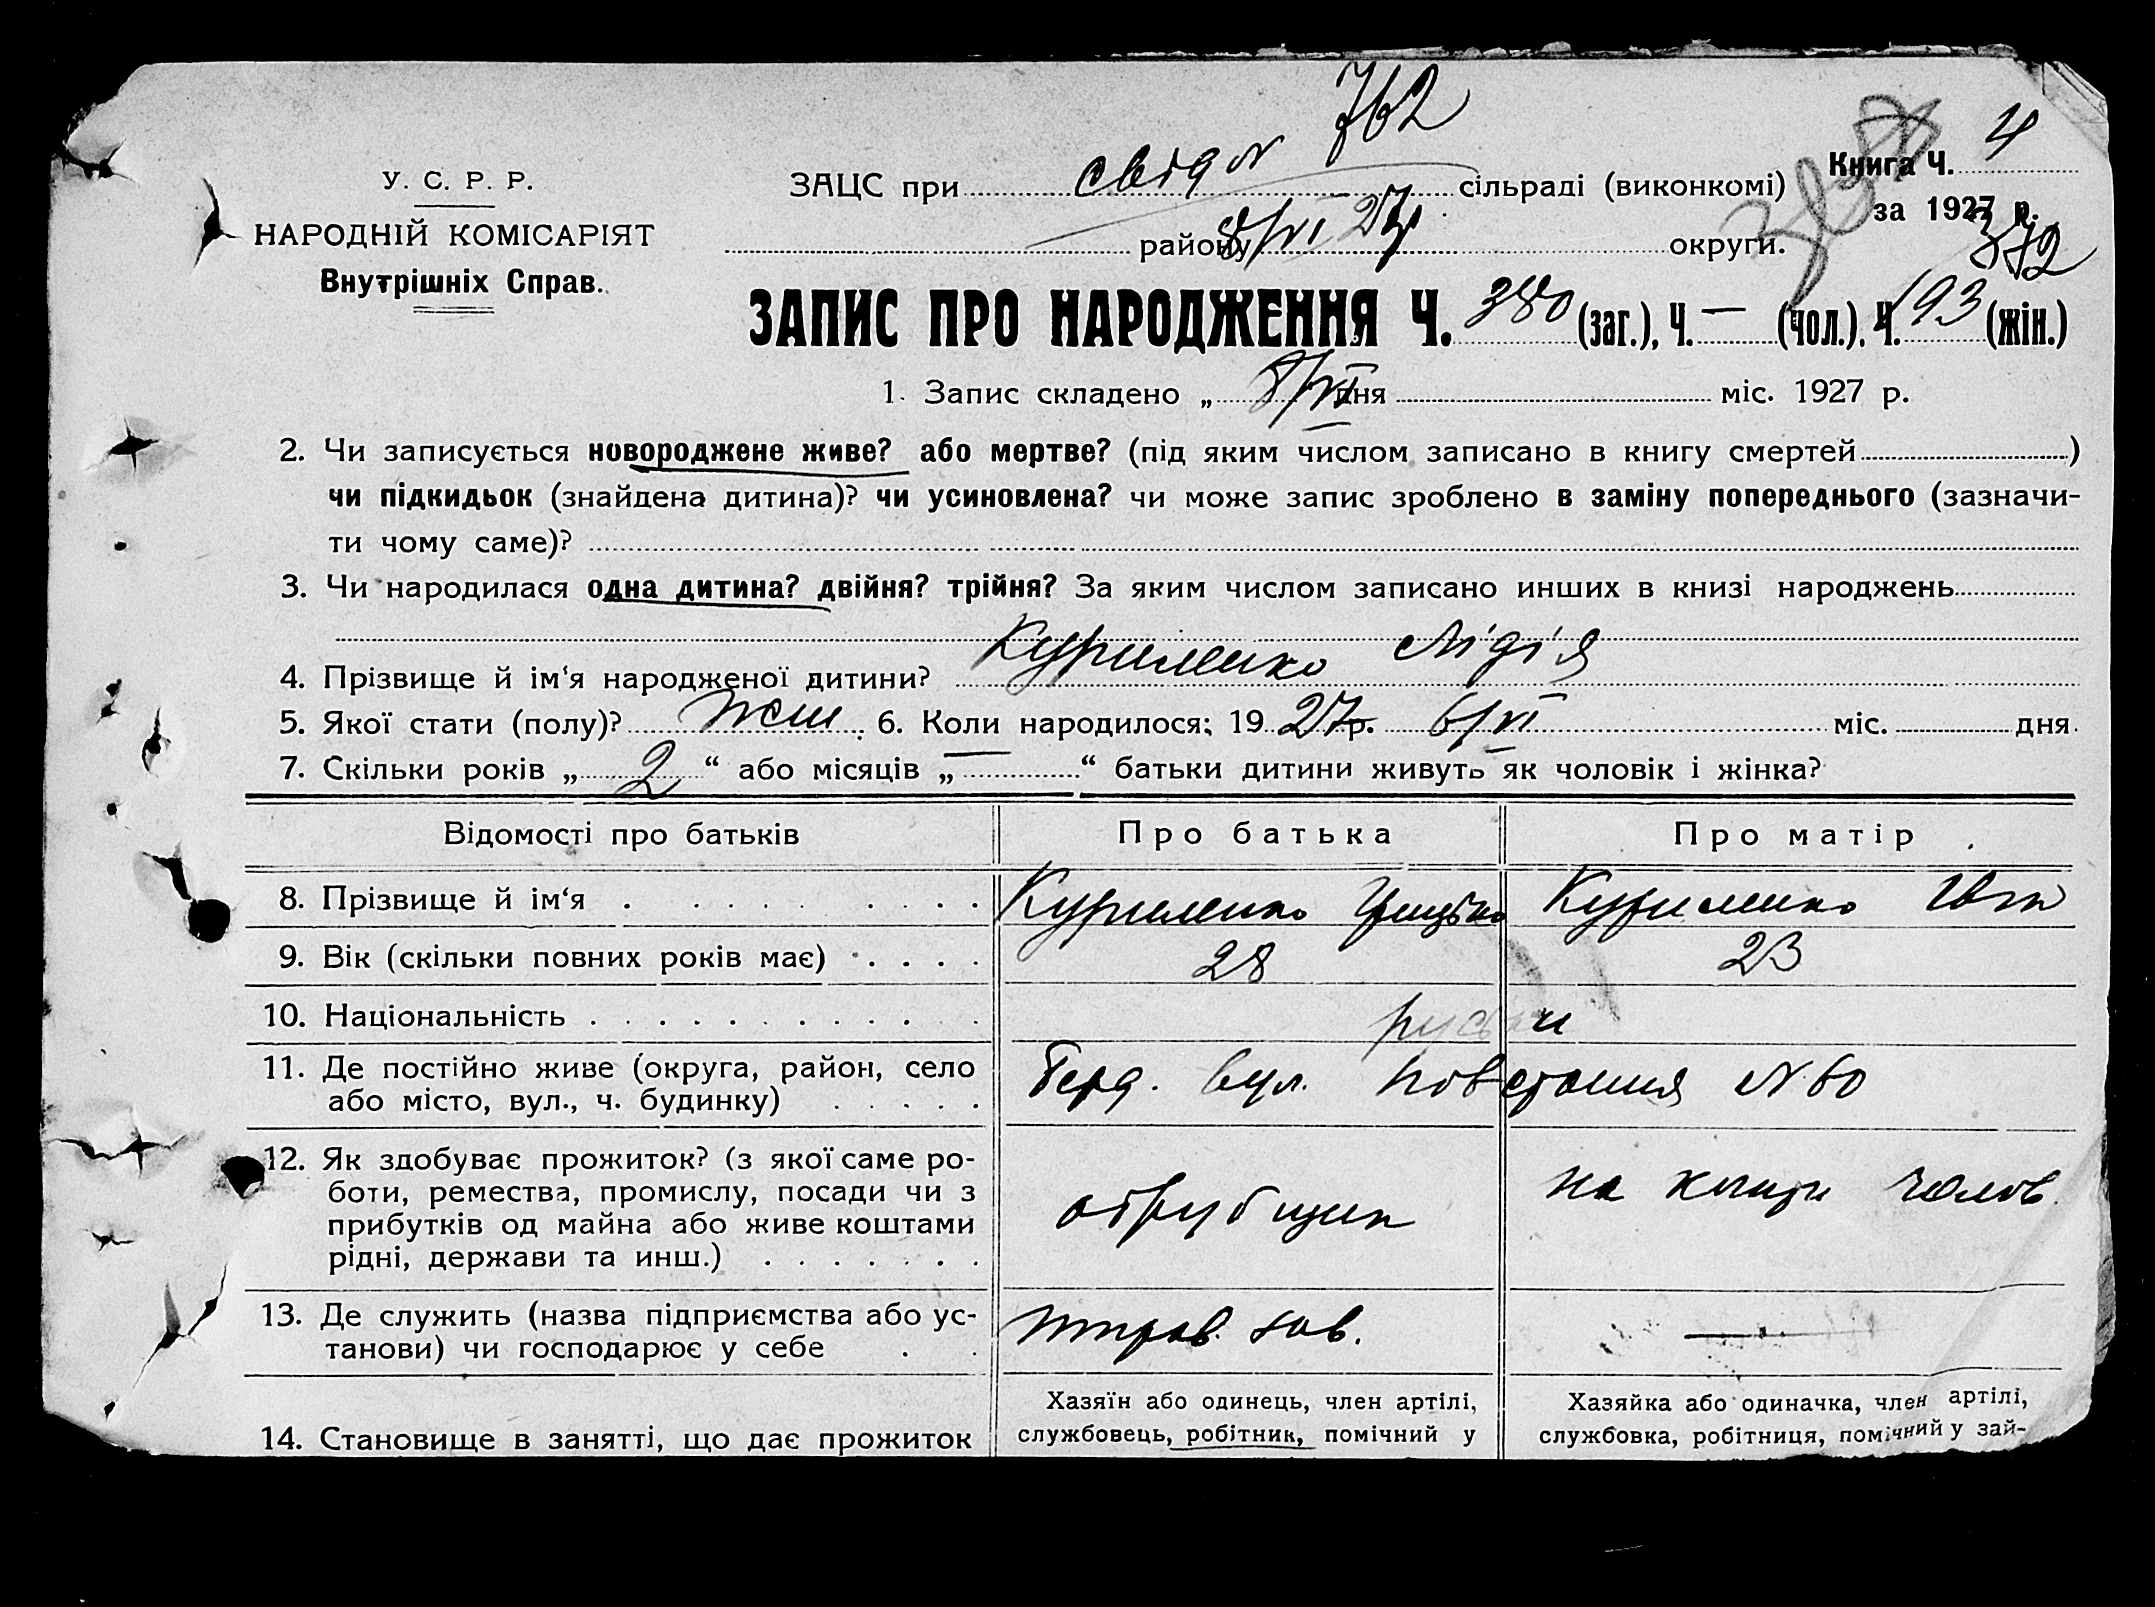 762
свід N
Книга Ч. 4
У. С. Р. Р.
ЗАЦС при сільраді (виконкомі)
за 1927 р.
НАРОДНІЙ КОМІСАРІЯТ
району 8/VI 27 округи.
372
Внутрішніх Справ.
ЗАПИС ПРО НАРОДЖЕННЯ Ч. 380 (заг.), Ч. — (чол.). Ч. 193 (жін.)
1. Запис складено „ 8/VI дня міс. 1927 р.
2. Чи записується новороджене живе? або мертве? (під яким числом записано в книгу смертей )
чи підкидьок (знайдена дитина)? чи усиновлена? чи може запис зроблено в заміну попереднього (зазначи-
ти чому саме)?
3. Чи народилася одна дитина? двійня? трійня? За яким числом записано инших в книзі народжень
4. Прізвище й ім‘я народженої дитини? Куриленко Лідія
5. Якої стати (полу)? жен. 6. Коли народилося; 19 27 р. 6/VI міс. дня.
7. Скільки років „ 2 “ або місяців „ — “ батьки дитини живуть як чоловік і жінка?
Відомості про батьків Про батька Про матір
8. Прізвище й ім‘я Куриленко Грицько Куриленко
9. Вік (скільки повних років має) 28 23
10. Національність
11. Де постійно живе (округа, район, село Берд. вул. Повстання N 60
або місто, вул., ч. будинку)
12. Як здобуває прожиток? (з якої саме ро-
боти, ремества, промислу, посади чи з обрубщик на кошти чолов.
прибутків од майна або живе коштами
рідні, держави та инш.)
13. Де служить (назва підприємства або ус- зав. —
танови) чи господарює у себе
Хазяїн або одинець, член артілі, Хазяйка або одиначка, член артілі,
14. Становище в занятті, що дає прожиток службовець, робітник, помічний у службовка, робітниця, помічний у зай-